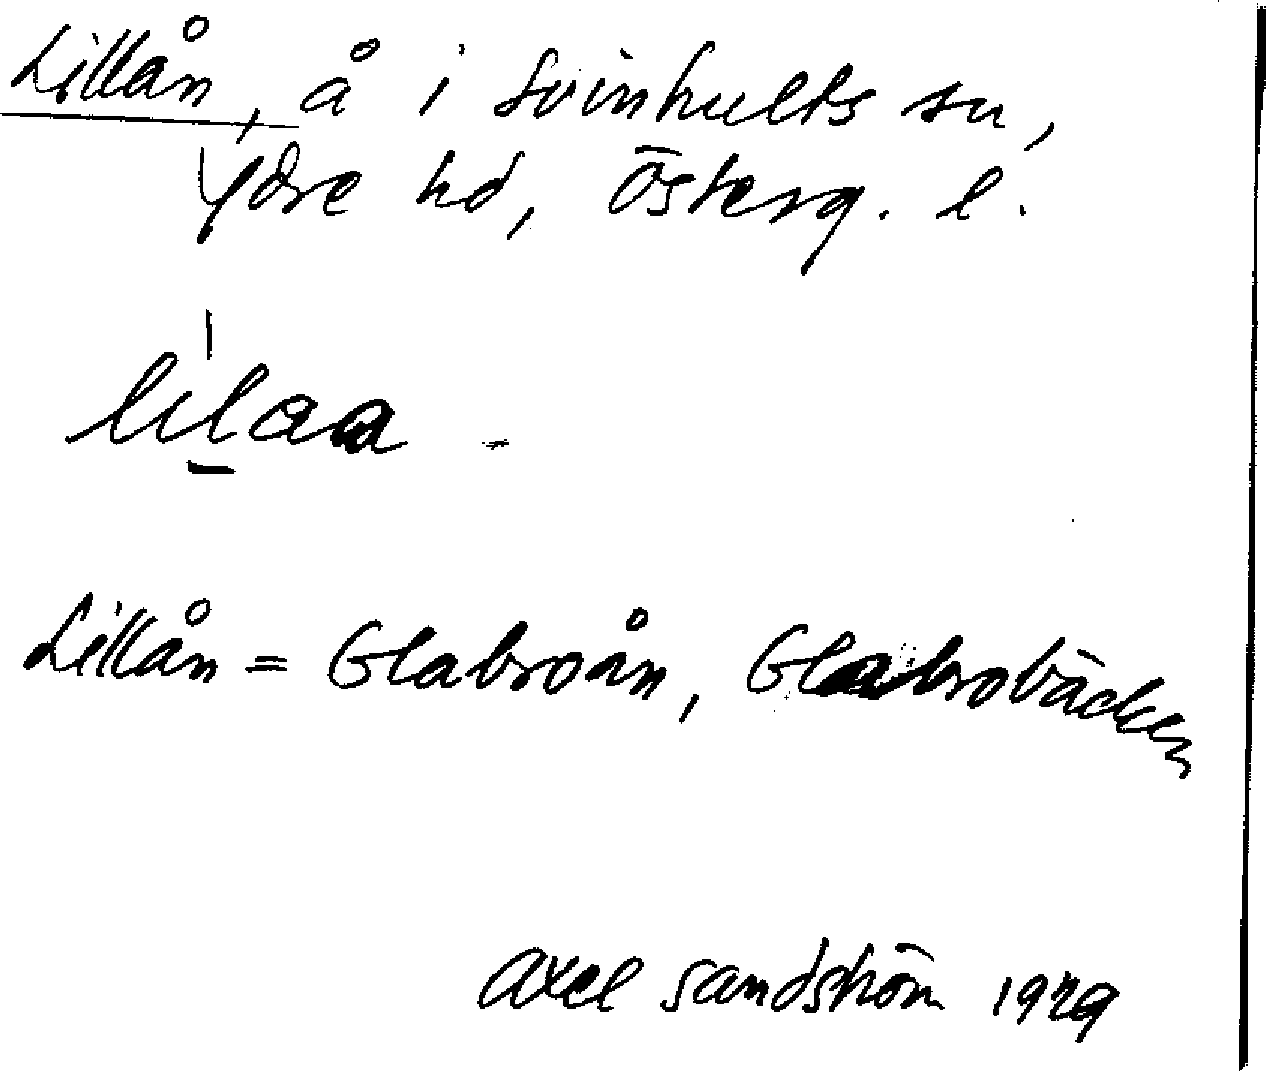 Lillån, å i Svinhults sn,
Ydre hd, Österg. l.
Lillån = Glabroån, Glabrobäcken
Axel Sandström 1929